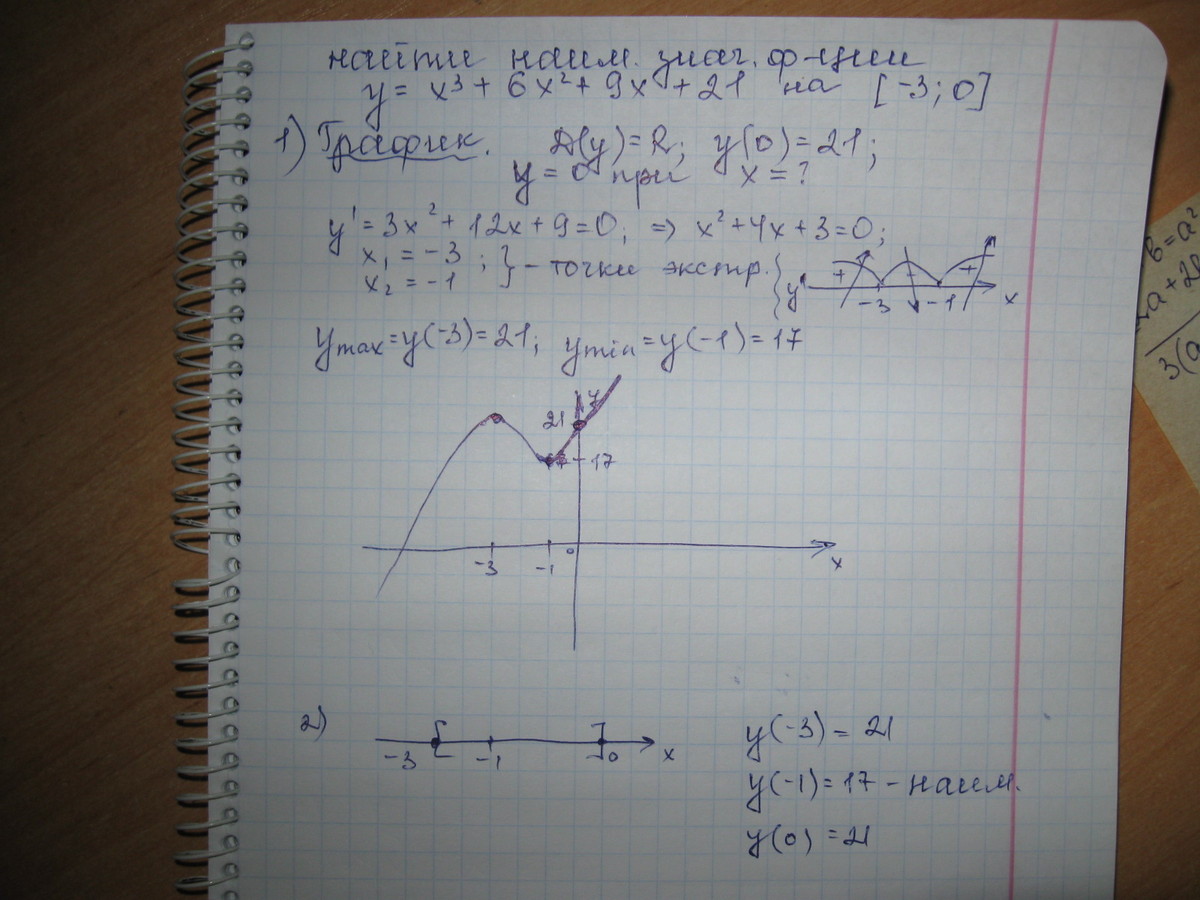 найти наим. знач. ф-ции
y = x³ + 6x² + 9x + 21 на [-3; 0]
1) График. D(y) = R; y(0) = 21;
y = 0 при x = ?
y' = 3x² + 12x + 9 = 0; ⇒ x² + 4x + 3 = 0;
x₁ = -3 ; } - точки экстр. { y' + + -3 -1 x
x₂ = -1
y max = y(-3) = 21; y min = y(-1) = 17
y
21
17 - 17
-3 -1 0 x
2) -3 [ -1 ] 0 x
y(-3) = 21
y(-1) = 17 - наим.
y(0) = 21
в = а²
а + 2в
3(а